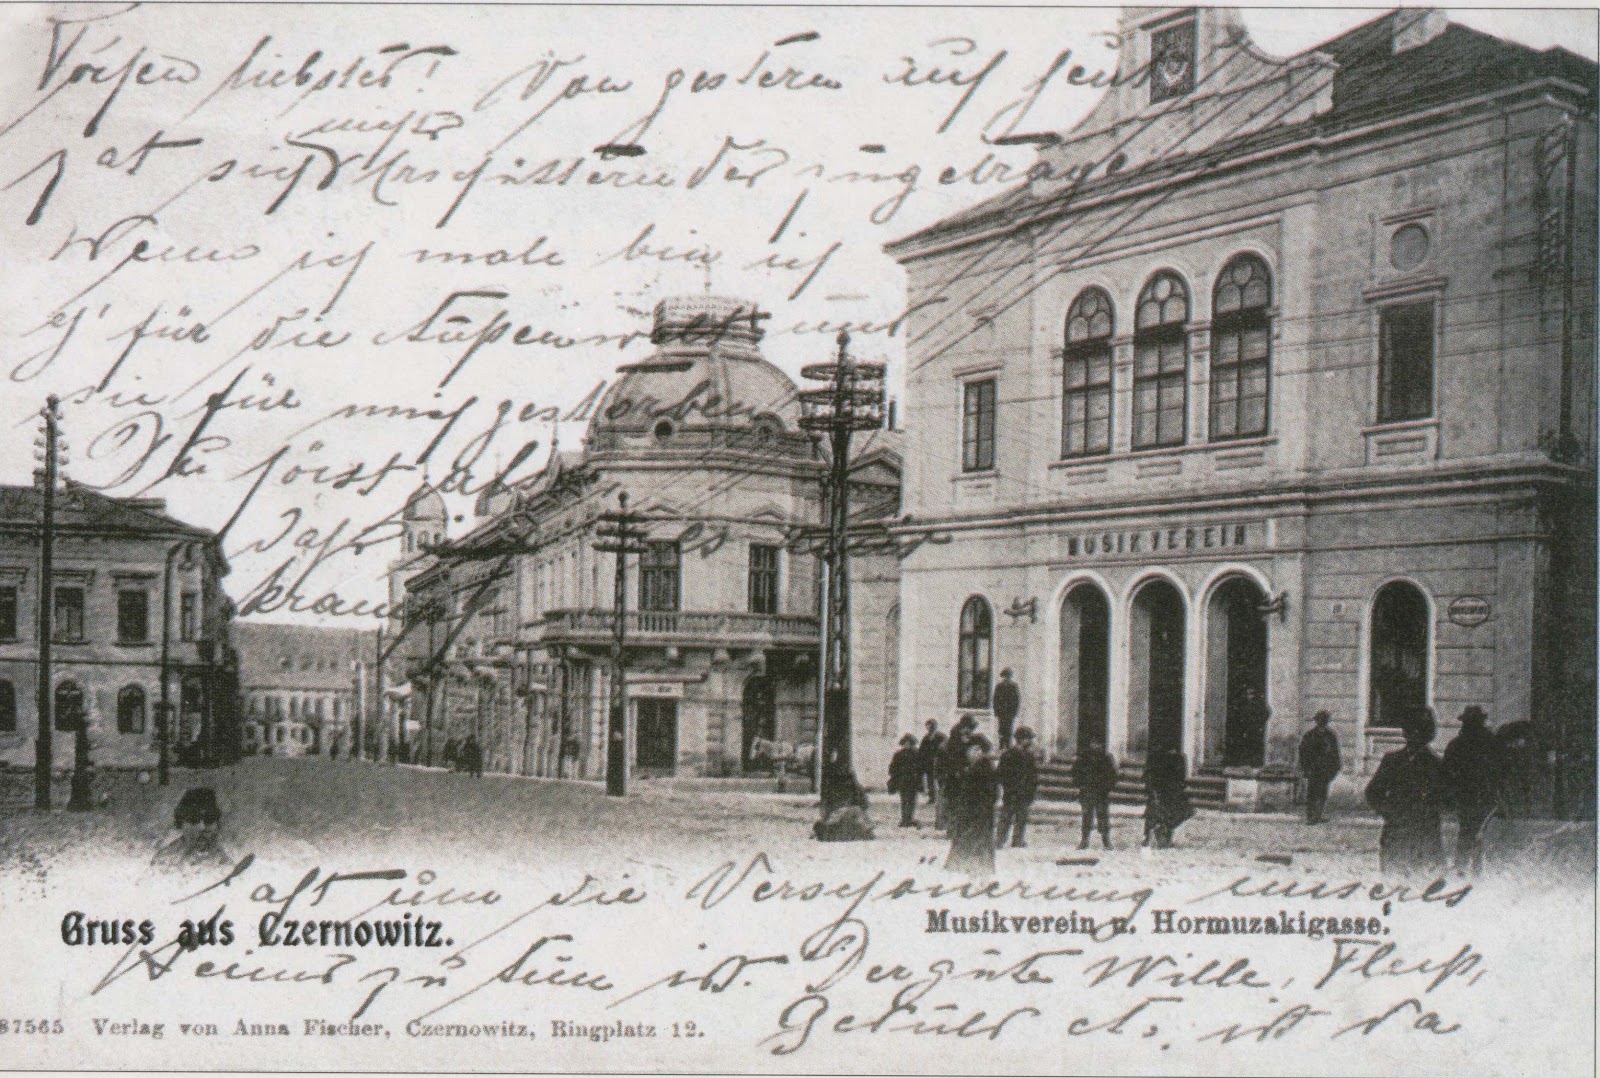 liebster! Von gestern auf heut
nichts
hat sich Erschütterndes zugetragen
Wenn ich male bin ich
für die Außenwelt und
sie für mich gestorben
Du hörst also
daß es
MUSIKVEREIN
um die Verschönerung unseres
Gruss aus Czernowitz.
Musikverein u. Hormuzakigasse.
Heims zu tun ist. Der gute Wille, Fleiß,
Geduld etc. ist da
87565 Verlag von Anna Fischer, Czernowitz, Ringplatz 12.